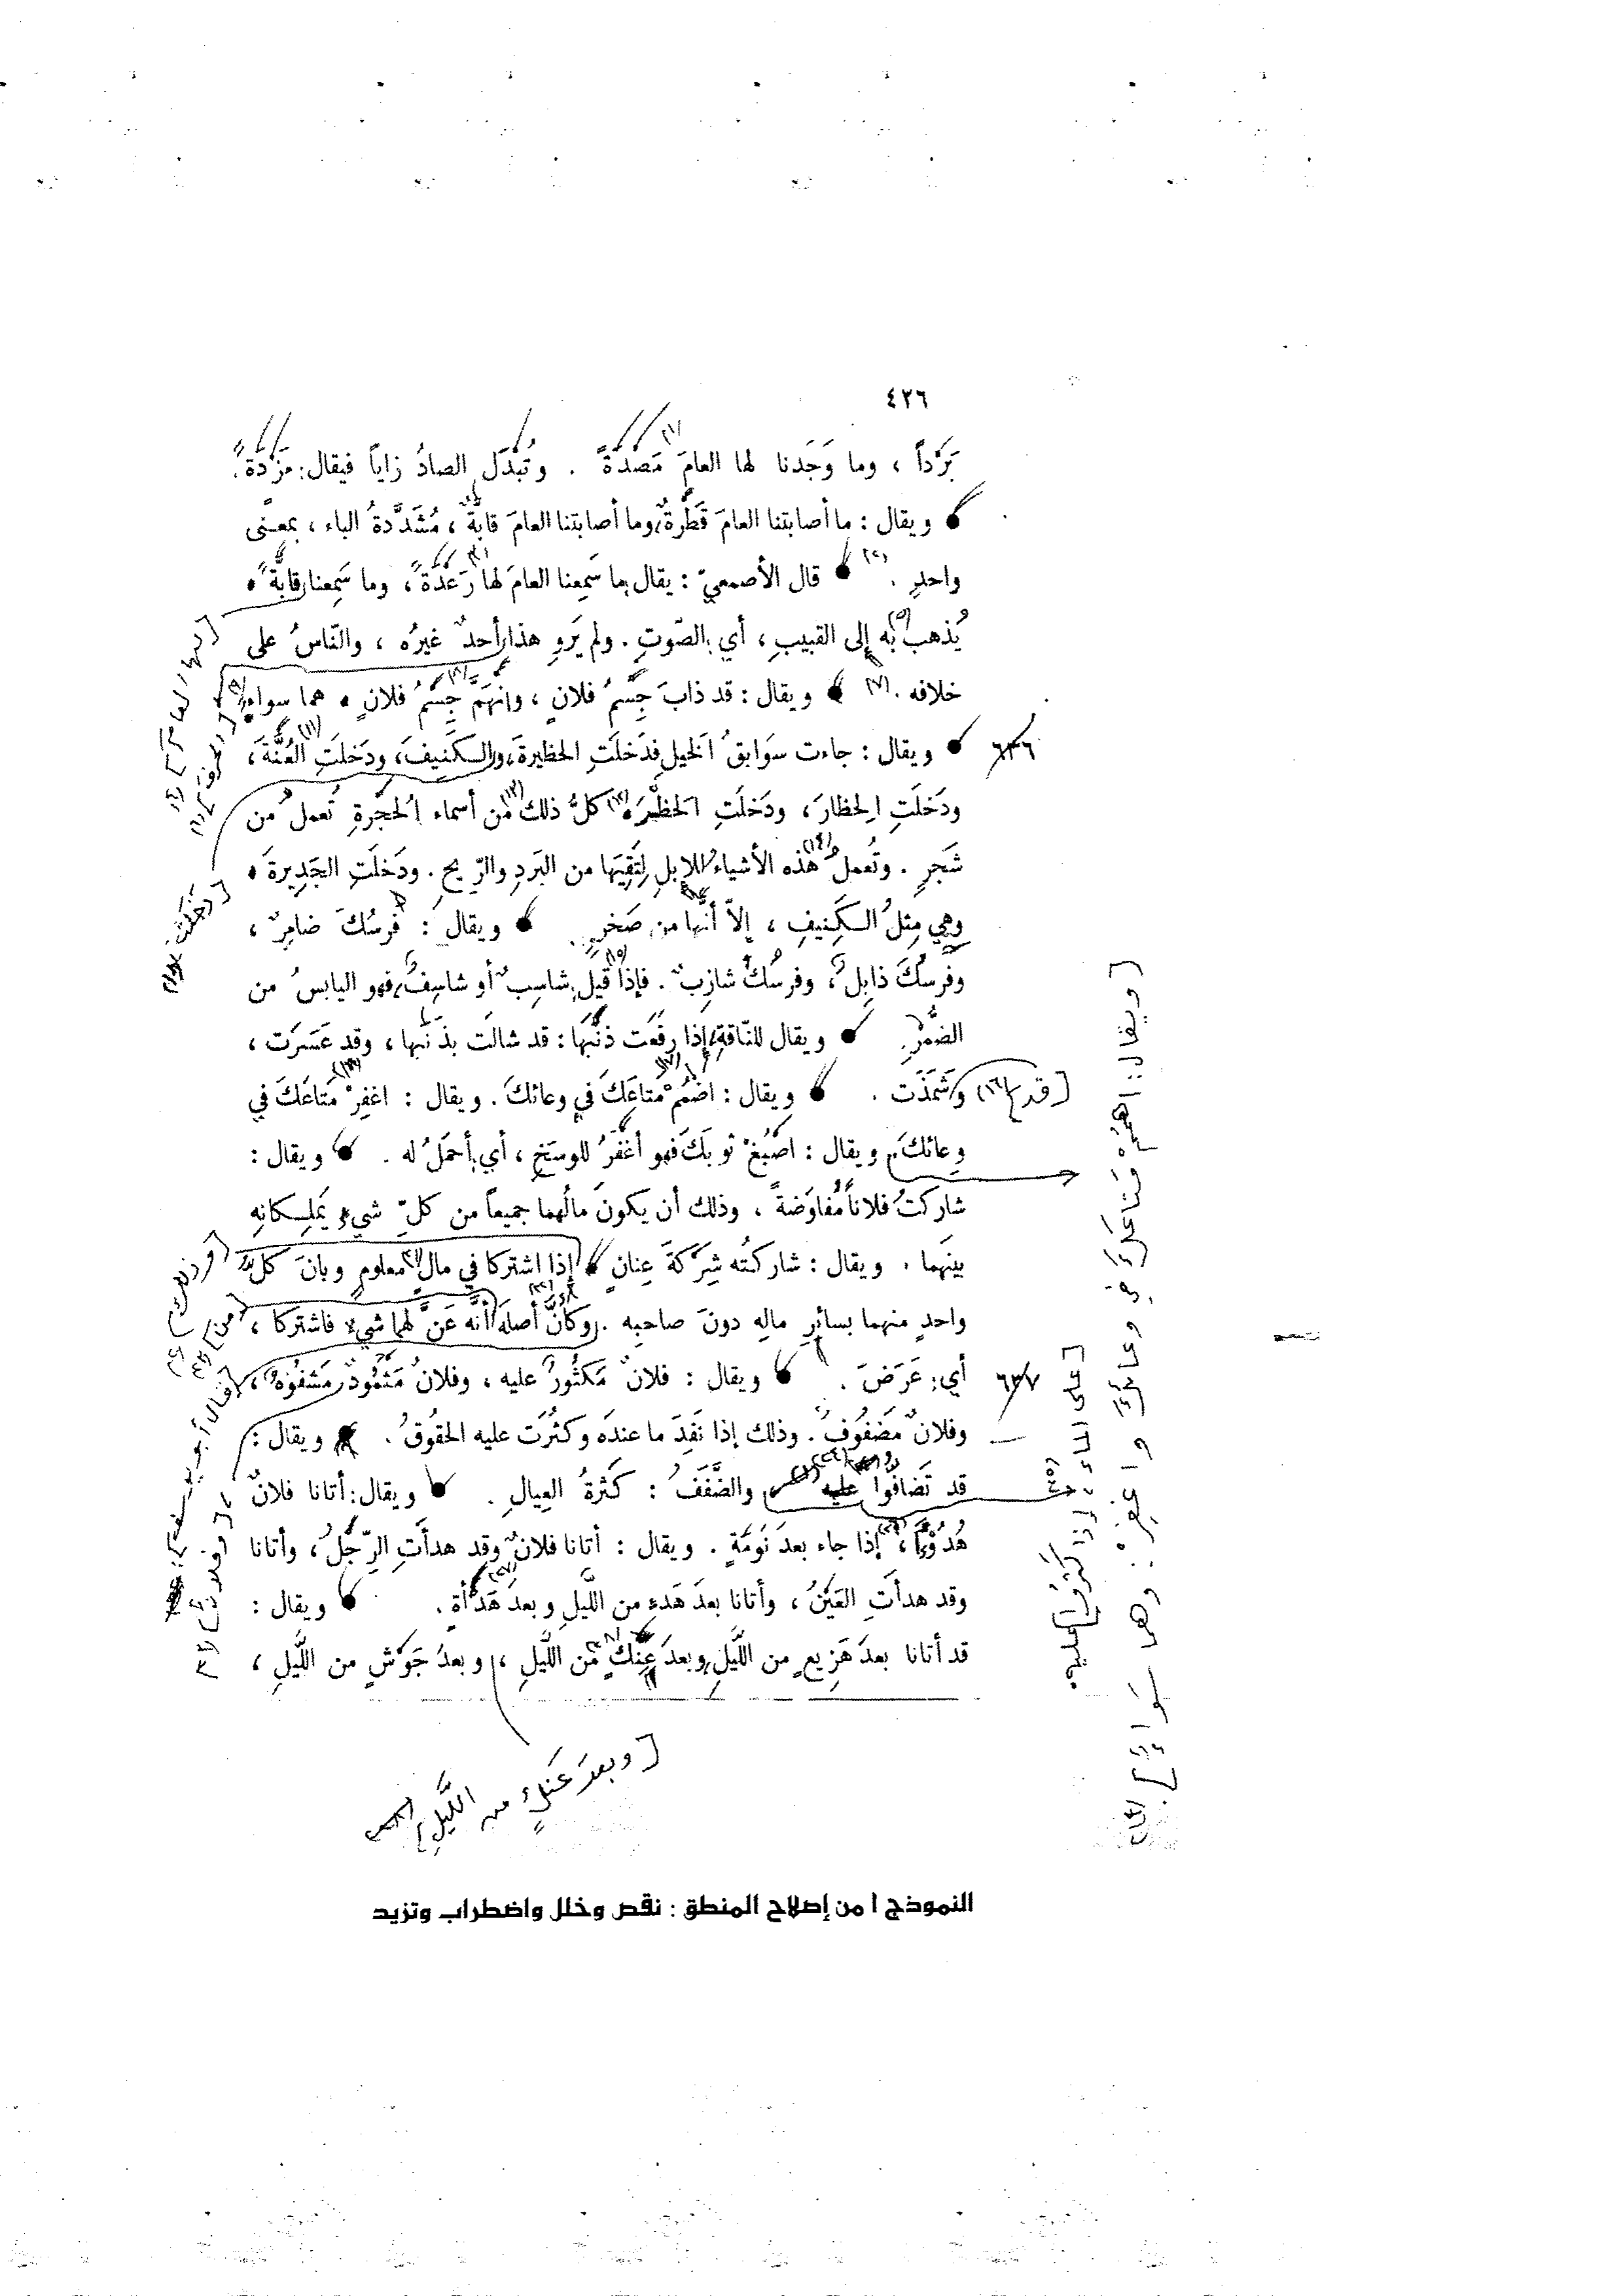 ٤٢٦
بَرْداً ، وما وَجَدنا لها العامَ مَصْدَةً . وتُبْدَل الصادُ زاياً فيقال : مَزْدَةً .
ويقال : ما أصابتنا العامَ قَطْرةٌ ، وما أصابتنا العامَ قابّةٌ ، مُشَدَّدةُ الباء ، بمعنًى
واحدٍ . (٢) قال الأصمعيّ : يقال ما سَمِعنا العامَ لها رَعْدَةً ، وما سَمِعنا قابّةً
يُذهب به إلى القبيبِ ، أي الصّوتِ . ولم يَروِ هذا أحدٌ غيرُه ، والنّاسُ على
خلافه . (٧) ويقال : قد ذابَ جِسْمُ فلانٍ ، وانهَمَّ جِسْمُ فلانٍ هما سواء
٦٣٦ ويقال : جاءت سَوَابقُ الخيلِ فدَخلَتِ الحظيرةَ ، والكَنِيفَ ، ودَخلَتِ العُنَّةَ ،
ودَخلَتِ الحِظارَ ، ودَخلَتِ الحَظِرَةَ كلُّ ذلك من أسماء الحُجْرةِ تُعملُ من
شَجرٍ . وتُعملُ هذه الأشياءُ للإبلِ لِتَقِيَها من البَردِ والرّيحِ . ودَخلَتِ الجَدِيرةَ
وهي مِثلُ الكَنِيفِ ، إلاّ أنّها من صَخرٍ ويقال : فرسُكَ ضامِرٌ ،
وفرسُكَ ذابِلٌ ، وفرسُكَ شازِبٌ . فإذا قيل شاسِبٌ أو شاسِفٌ فهو اليابسُ من
الضُّمْرِ . ويقال للنّاقةِ إذا رفَعَت ذنَبَها : قد شالَت بذَنَبها ، وقد عَسَرَت ،
[قد] (١٦) وشَمَذَت . ويقال : اضْمُمْ مَتاعَكَ في وعائكَ . ويقال : اغفِرْ مَتاعَكَ في
وعائكَ ، ويقال : اصْبُغْ ثوبَكَ فهو أغْفَرُ للوسَخِ ، أي أحمَلُ له . ويقال :
شاركتُ فلاناً مُفاوَضةً ، وذلك أن يكونَ مالُهما جميعاً من كلِّ شيءٍ يَملِكانِهِ
بينَهما . ويقال : شاركتُه شِرْكةَ عِنانٍ إذا اشتركا في مالٍ معلومٍ وبانَ كلُّ
واحدٍ منهما بسائرِ مالِه دونَ صاحبِه . وكأنَّ أصلَه أنّه عَنَّ لهما شيءٌ فاشتركا ،
أي : عَرَضَ . ويقال : فلانٌ مَكثُورٌ عليه ، وفلانٌ مَثمُودٌ مَشفُوهٌ ،
٦٣٧
وفلانٌ مَضْفُوفٌ . وذلك إذا نَفِدَ ما عندَه وكثُرَت عليه الحقُوقُ . ويقال :
قد تَضافُّوا عليه والضَّفَفُ : كَثرةُ العِيالِ . ويقال : أتانا فلانٌ
هُدُوْءاً ، إذا جاء بعدَ نَومَةٍ . ويقال : أتانا فلانٌ وقد هدأَتِ الرِّجْلُ ، وأتانا
وقد هدأَتِ العَيْنُ ، وأتانا بعدَ هَدءٍ من اللّيلِ وبعدَ هَدْأةٍ . ويقال :
قد أتانا بعدَ هَزِيعٍ من اللّيلِ وبعدَ عِنْكٍ من اللّيلِ ، وبعدَ جَوْشٍ من اللّيلِ ،
[وبعدَ عَنكٍ من اللَّيلِ]
[دخلَت]
[من]
[على الماءِ إذا كَثُرُوا عليه .
النموذج ١ من إصلاح المنطق : نقص وخلل واضطراب وتزيد